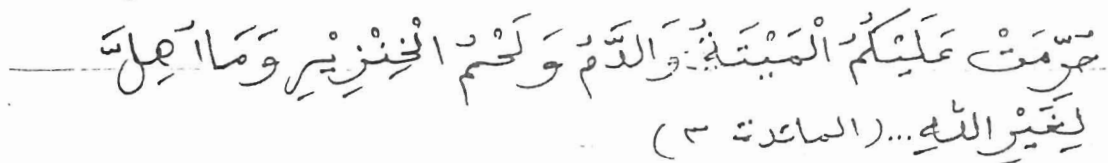 حُرِّمَتْ عَلَيْكُمُ الْمَيْتَةُ وَالدَّمُ وَلَحْمُ الْخِنْزِيْرِ وَمَا اُهِلَّ
لِغَيْرِ اللّٰهِ...(المائدة ٣)